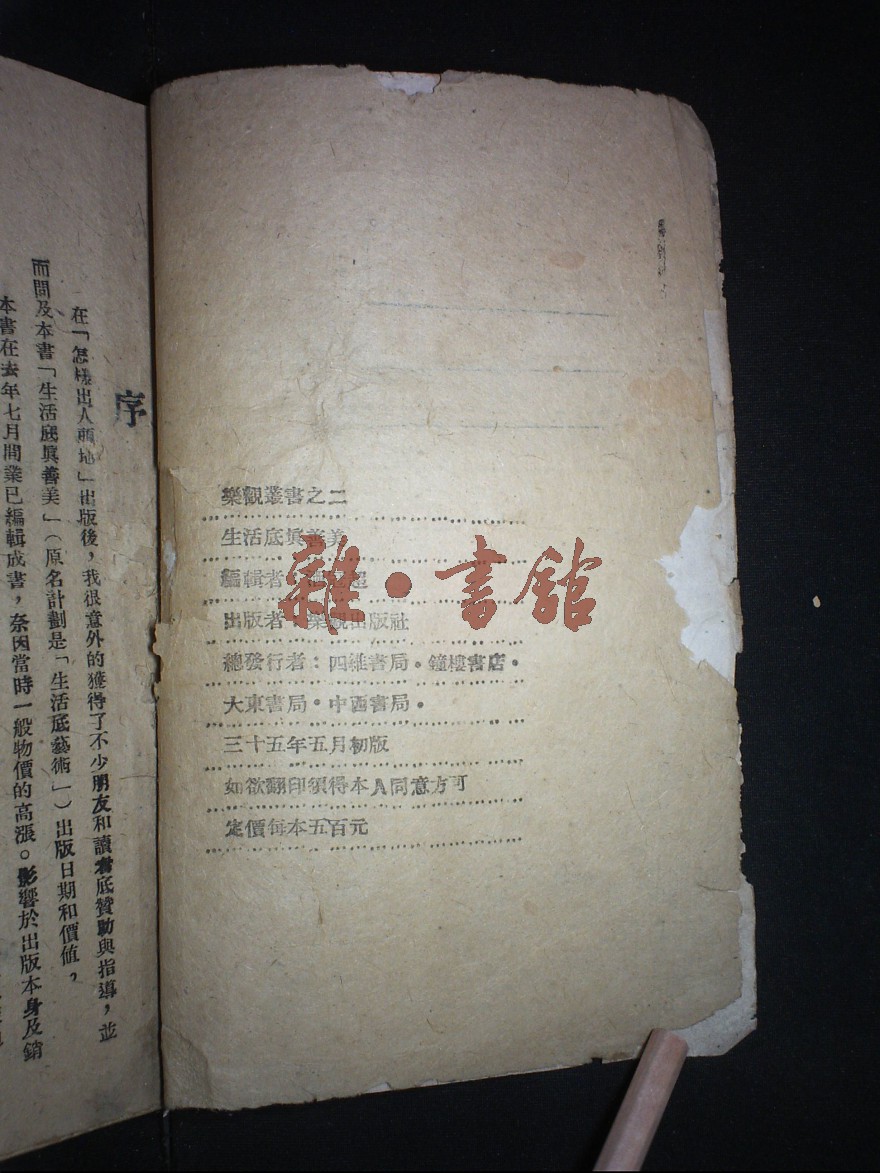 樂觀叢書之二
生活底眞善美
編輯者
出版者：樂觀出版社
總發行者：四維書局．鐘樓書店．
大東書局．中西書局．
三十五年五月初版
如欲翻印須得本人同意方可
定價每本五百元
雜·書館
序
在「怎樣出人頭地」出版後，我很意外的獲得了不少朋友和讀者底贊助與指導，並
而問及本書「生活底眞善美」（原名計劃是「生活底藝術」）出版日期和價值，
本書在去年七月間業已編輯成書，奈因當時一般物價的高漲。影響於出版本身及銷